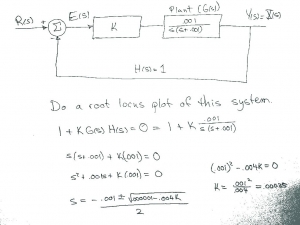 Plant (G(s))
R(s) + Σ E(s) K .001 / s(s+.001) Y(s)=
H(s)=1
Do a root locus plot of this system.
1 + K G(s) H(s) = 0 = 1 + K .001 / s(s+.001)
s(s+.001) + K(.001) = 0
s² + .001s + K(.001) = 0
s = -.001 ± √.000001-.004K / 2
(.001)² - .004K = 0
K = .001² / .004 = .00025